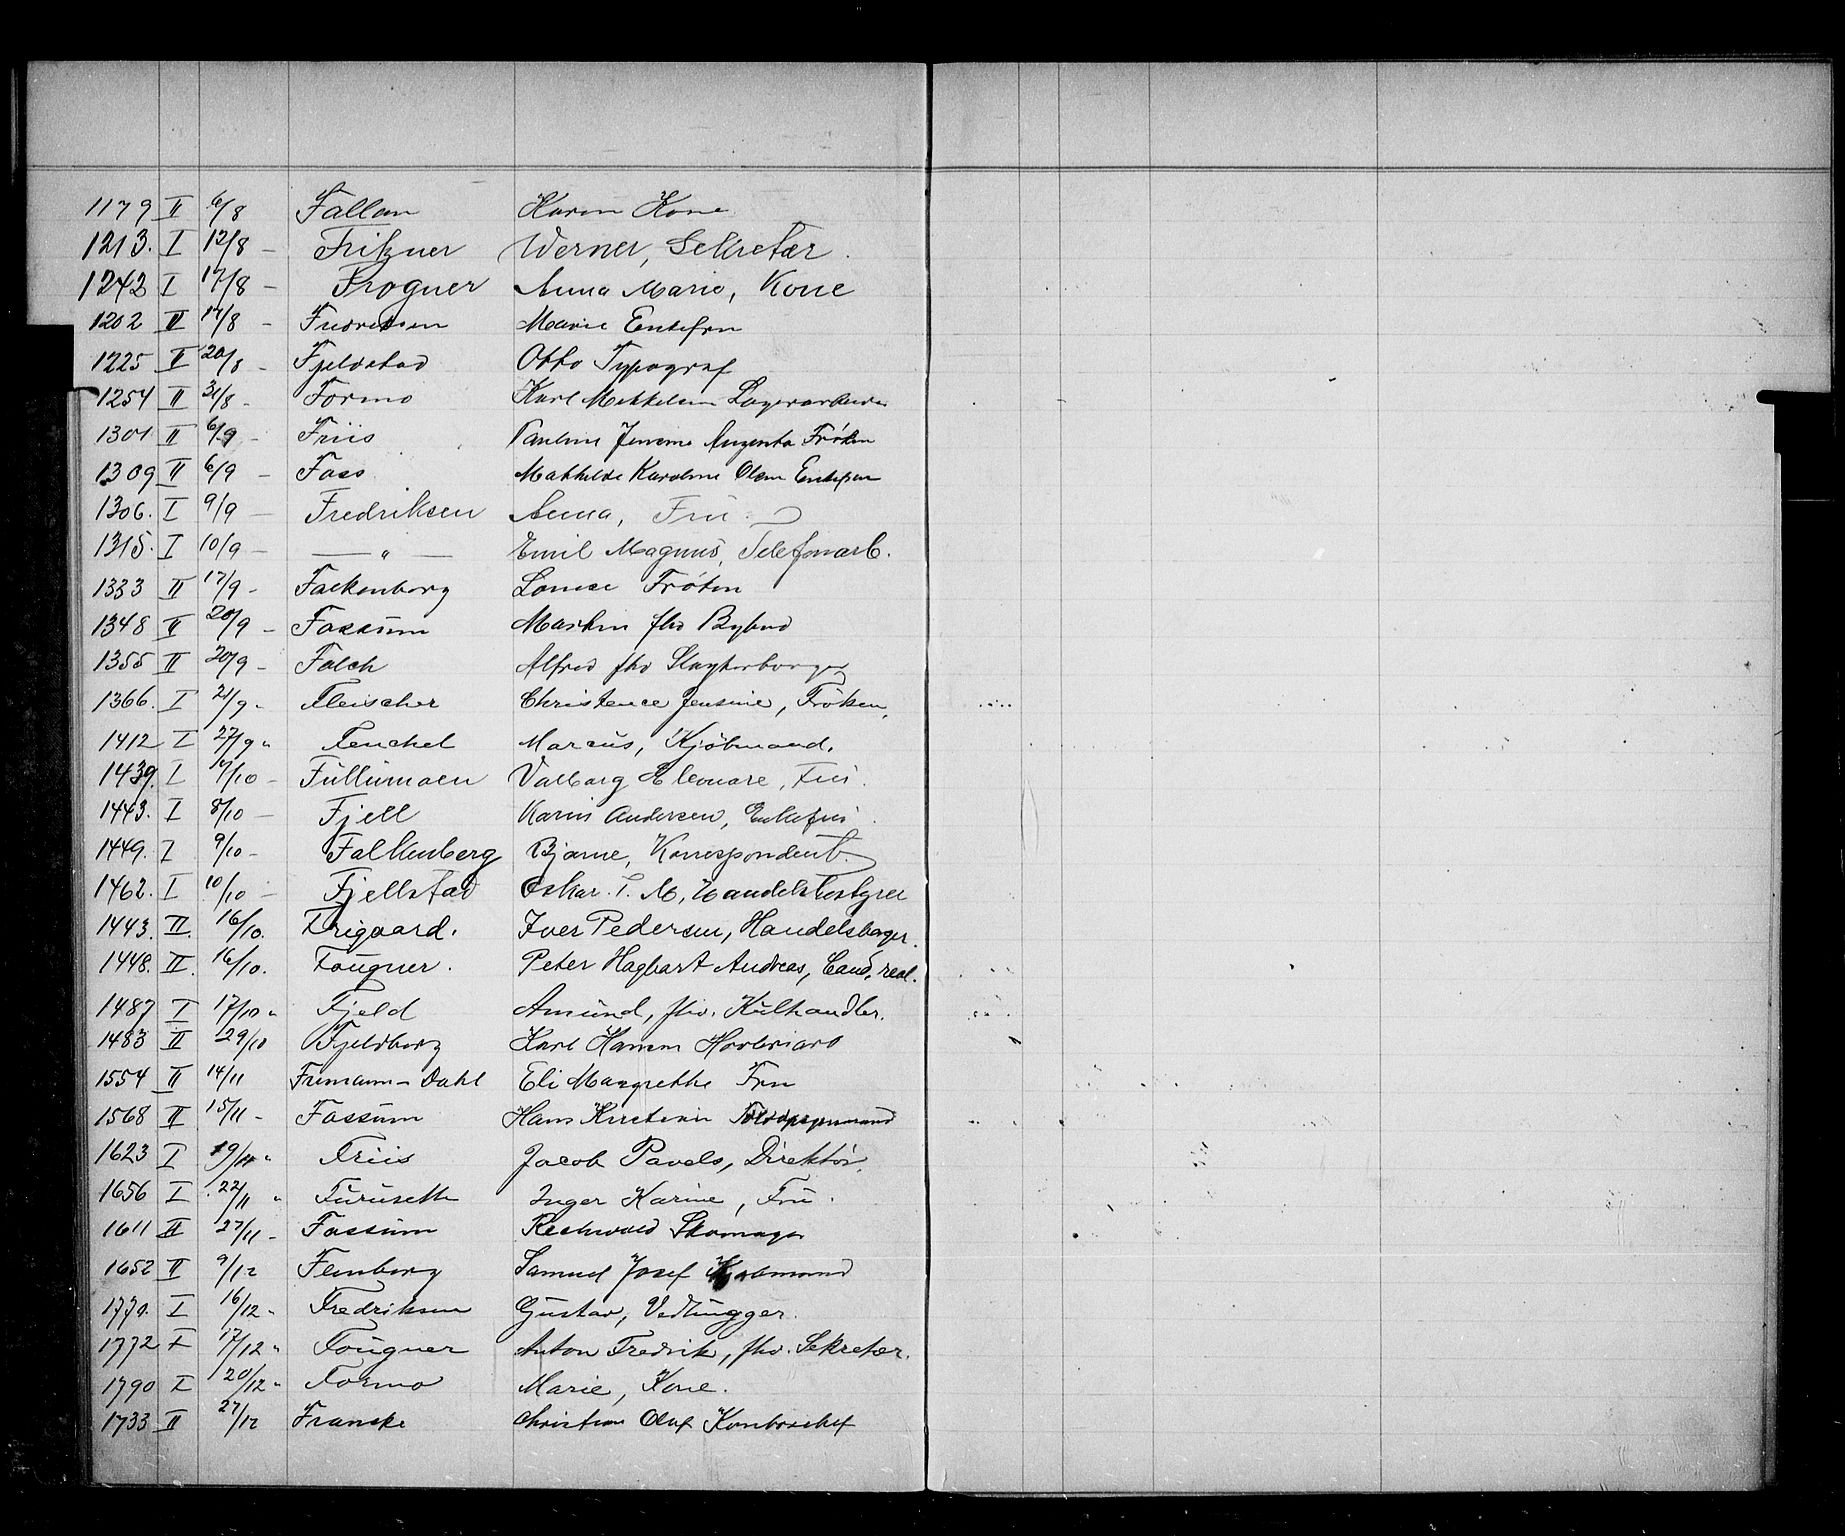 1179 II 6/8 Fallan Karen Kone
1213. I 12/8 – Fritzner Werner, Sekretær.
1242 I 17/8 – Frogner Anna Marie, Kone
1202 II 17/8 – Fredriksen Marie Enkefru
1225 II 20/8 – Fjeldstad Otto Typograf
1254 II 31/8 – Formo Karl Mikkelsen Lagerarbeider
1301 II 6/9 – Friis Pauline Jensine Augusta Frøken
1309 II 6/9 – Foss Mathilde Karoline Olsen Enkefru
1306. I 9/9 – Fredriksen Anna, Fru
1315. I 10/9 – — " — Emil Magnus, Telefonarb.
1333 II 17/9 – Falkenborg Louise Frøken
1348 II 20/9 – Fossum Martin fhv Bybud
1355 II 20/9 – Falch Alfred fhv
1366. I 21/9 – Fleischer Christence Jensine, Frøken,
1412 I 27/9 " Fenchel Marcus, Kjöbmand.
1439. I 7/10 – Fullumoen Valborg Eleonore, Fru.
1443. I 8/10 – Fjell Karin Andersen, Enkefru.
1449. I 9/10 – Falkenberg Bjarne, Korrespondent.
1462. I 10/10 – Fjellstad Oskar. T. M, Handelsbestyrer
1443. II. 16/10. Frigaard. Iver Pedersen, Handelsborger.
1448. II. 16/10. Fougner. Peter Hagbart Andreas, Cand. real.
1487 I 17/10 " Fjeld Amund, fhv. Kulhandler.
1483 II 29/10 Fjeldborg Karl Hansen
1554 II 14/11 Frimann-Dahl Eli Margrethe Fru
1568 II 15/11 – Fossum Hans Kristian
1623 I 19/11 " Friis Jacob Pavels, Direktör.
1656 I 22/11 " Furuseth Inger Karine, Fru.
1611 II 27/11 – Fossum Skomager
1652 II 9/12 Feinberg Samuel Josef Kjøbmand
1770. I 16/12 " Fredriksen Gustav, Vedhugger.
1772 I 17/12 " Fougner Anton Fredrik, fhv. Sekretær.
1790 I 20/12 " Formo Marie, Kone.
1733 II 27/12 Franske Christian Olaf Kontorchef